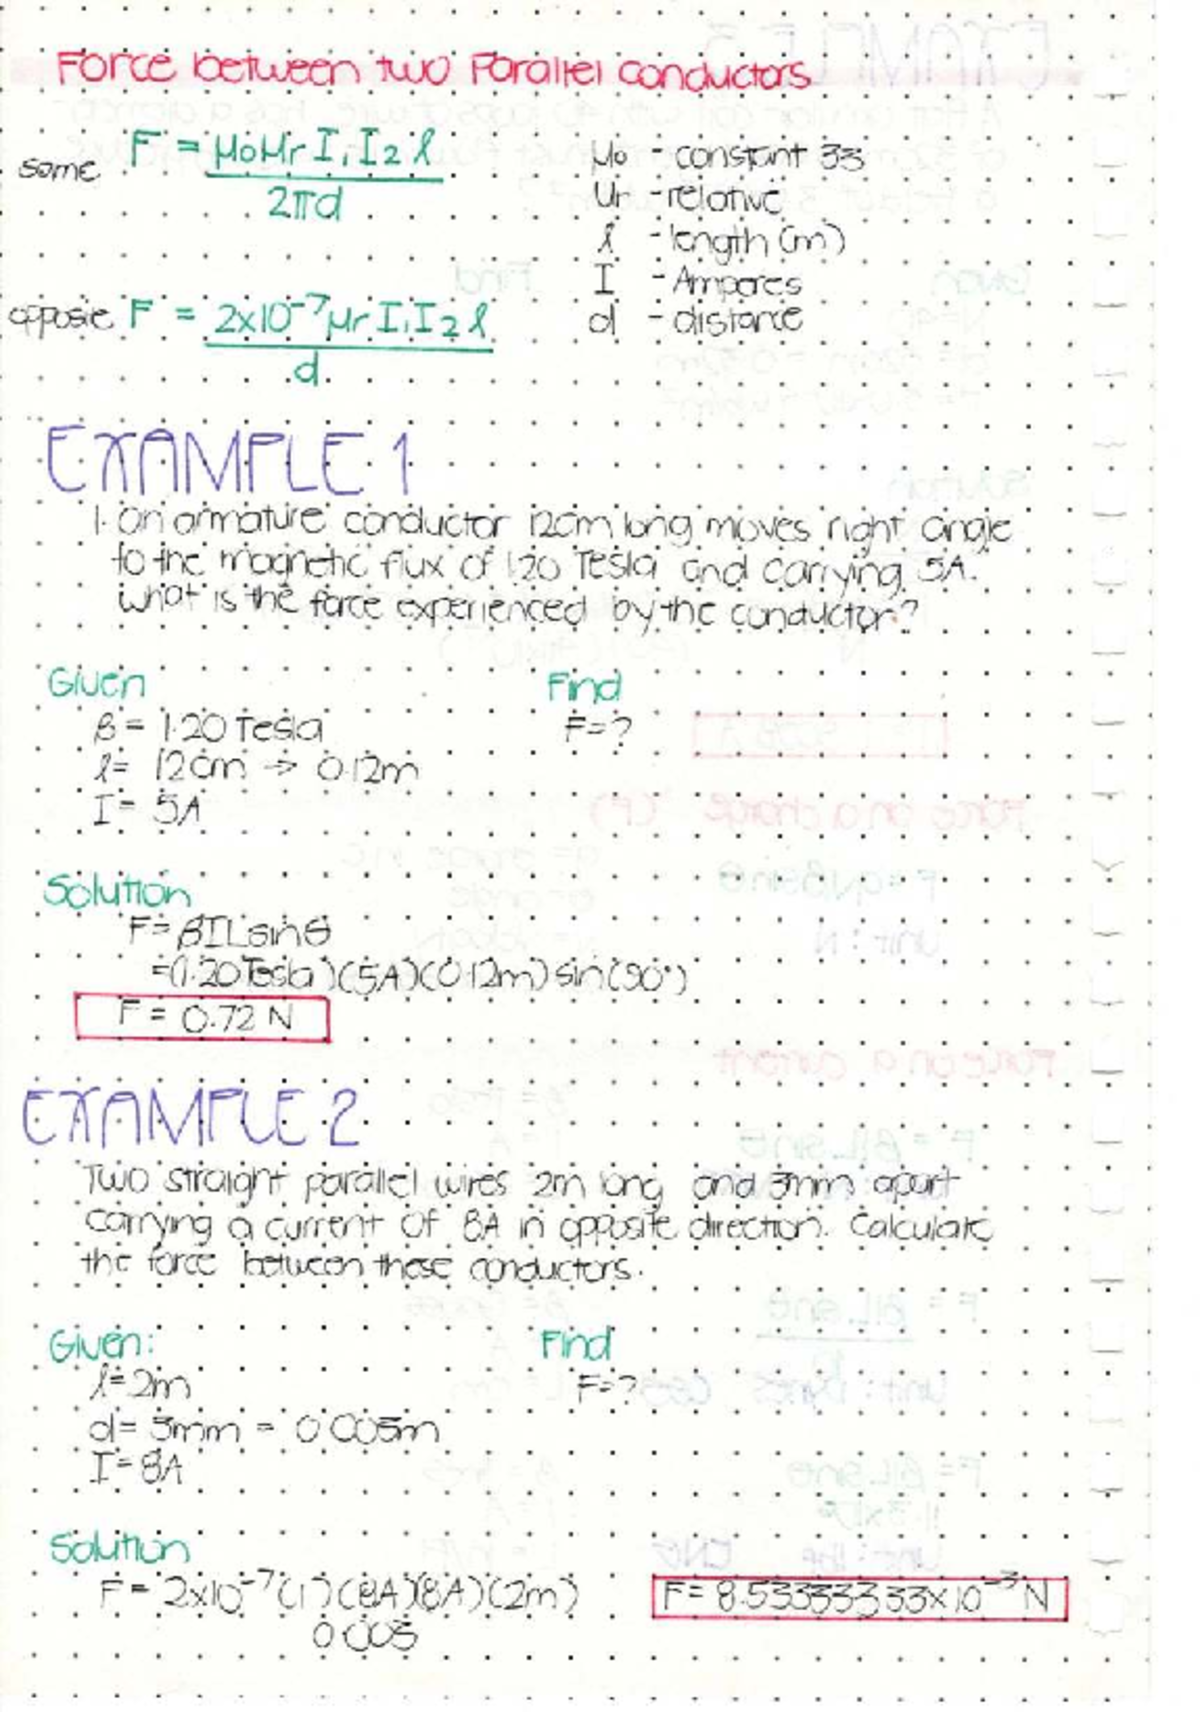 Force between two Parallel conductors
same F = μoμr I₁ I₂ ℓ
2πd
μo - constant 33
Ur - relative
ℓ - length (m)
I - Amperes
d - distance
opposite F = 2x10⁻⁷ μr I₁ I₂ ℓ
d
EXAMPLE 1
1. an armature conductor 12cm long moves right angle
to the magnetic flux of 1.20 Tesla and carrying 5A.
what is the force experienced by the conductor?
Given
β = 1.20 Tesla
ℓ = 12cm → 0.12m
I = 5A
Find
F = ?
Solution
F = βILsinθ
= (1.20Tesla)(5A)(0.12m) sin(90°)
F = 0.72 N
EXAMPLE 2
Two straight parallel wires 2m long and 3mm apart
carrying a current of 8A in opposite direction. Calculate
the force between these conductors.
Given:
ℓ = 2m
d = 3mm = 0.003m
I = 8A
Find
F = ?
Solution
F = 2x10⁻⁷ (1)(8A)(8A)(2m)
0.003
F = 8.533333333x10⁻³ N